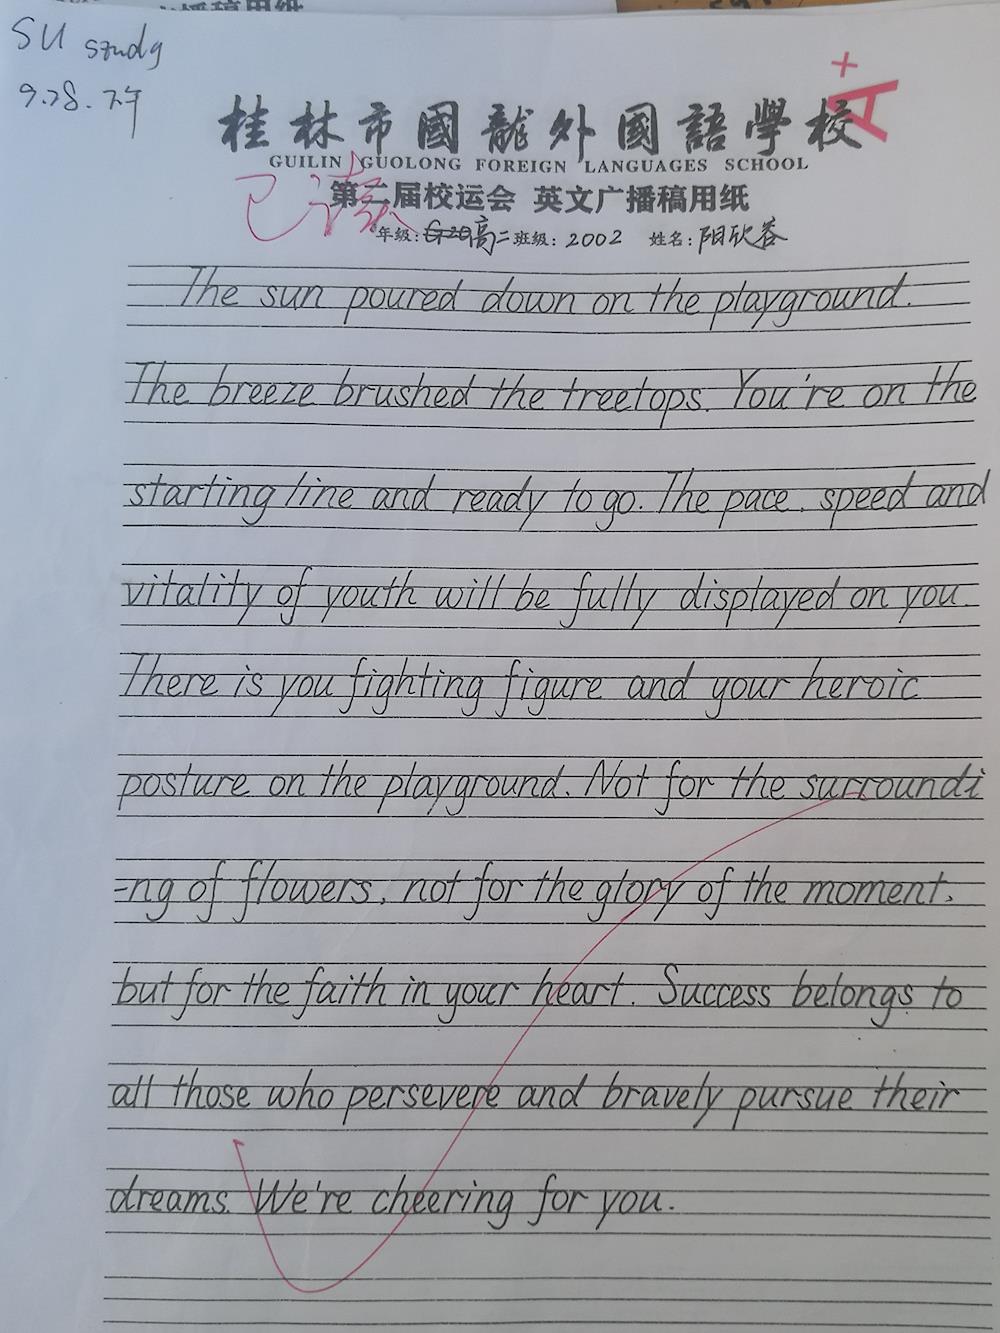 SU study
9.28.下午
A+
桂林市國龍外國語學校
GUILIN GUOLONG FOREIGN LANGUAGES SCHOOL
已读
第二届校运会 英文广播稿用纸
年级:高二 班级:2002 姓名:阳欣蓉
The sun poured down on the playground.
The breeze brushed the treetops. You're on the
starting line and ready to go. The pace, speed and
vitality of youth will be fully displayed on you.
There is you fighting figure and your heroic
posture on the playground. Not for the surroundi
-ng of flowers, not for the glory of the moment,
but for the faith in your heart. Success belongs to
all those who persevere and bravely pursue their
dreams. We're cheering for you.